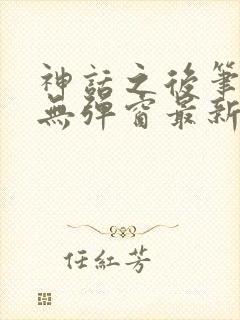 神話之後筆
無彈窗最新
任紅芳